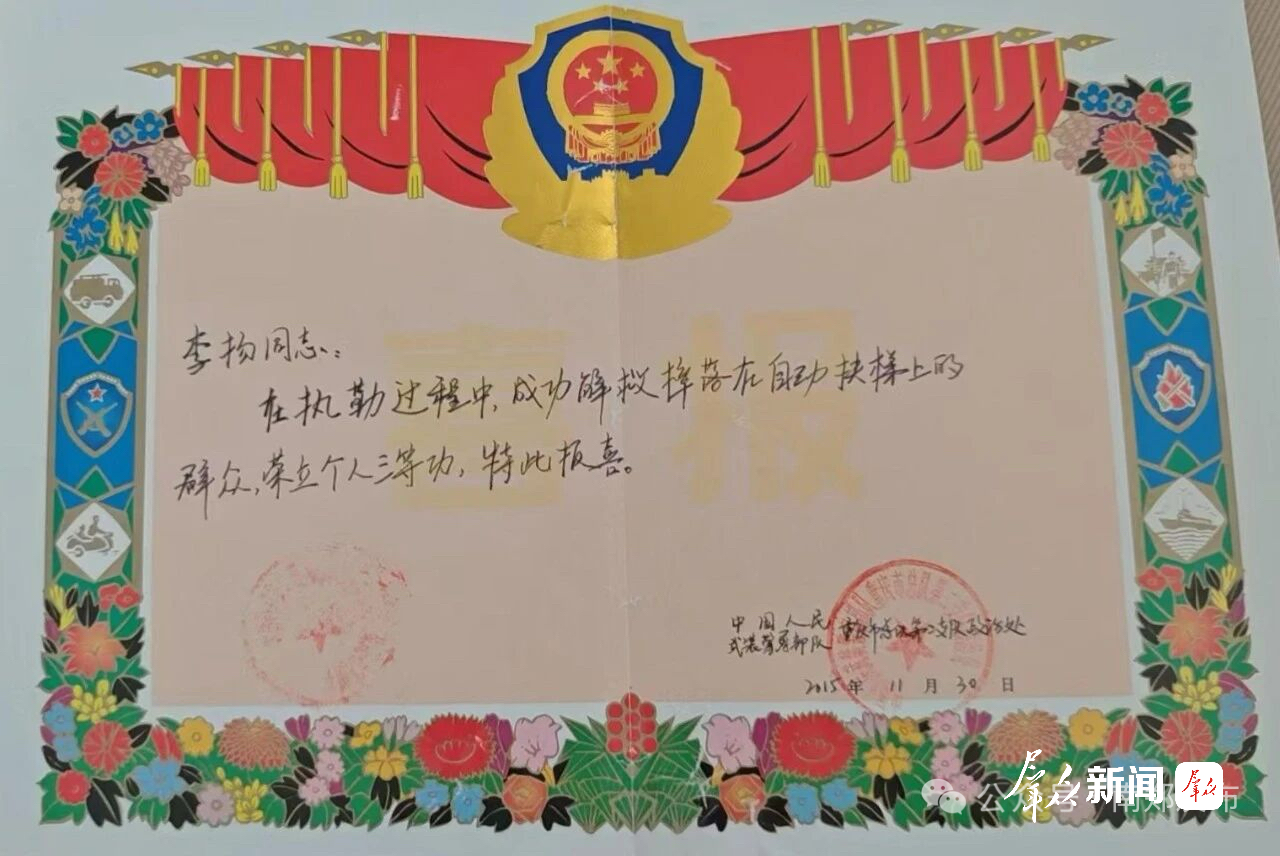 喜报
李扬同志：
在执勤过程中，成功解救摔落在自动扶梯上的
群众，荣立个人三等功，特此报喜。
中国人民
武装警察部队 重庆市总队第二支队政治处
2015年11月30日
群众新闻 群众
公众号